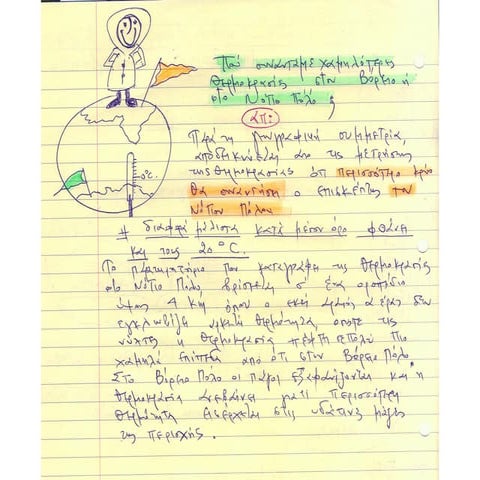 Πού συναντάμε χαμηλότερες
θερμοκρασίες στον Βόρειο ή
στο Νότιο Πόλο ;
απ:
Παρά τη γεωγραφική συμμετρία,
αποδεικνύεται από τις μετρήσεις
της θερμοκρασίας ότι περισσότερο κρύο
θα συναντήσει ο επισκέπτης τον
Νότιον Πόλου
0°C.
Η διαφορά μάλιστα κατά μέσον όρο φθάνει
και τους 20°C.
Το παρατηρητήριο που καταγράφει τις θερμοκρασίες
στο Νότιο Πόλο, βρίσκεται σ' ένα οροπέδιο
ύψους 4 km όπου ο εκεί αραιός αέρας δεν
εγκλωβίζει θερμότητα, οπότε τις
νύχτες η θερμοκρασία πέφτει πολύ πιο
χαμηλά επίπεδα από ότι στον Βόρειο Πόλο.
Στο Βόρειο Πόλο οι πάγοι εξαφανίζονται και η
θερμοκρασία ανεβαίνει γιατί περισσότερη
θερμότητα εισέρχεται στις υδάτινες μάζες
της περιοχής.